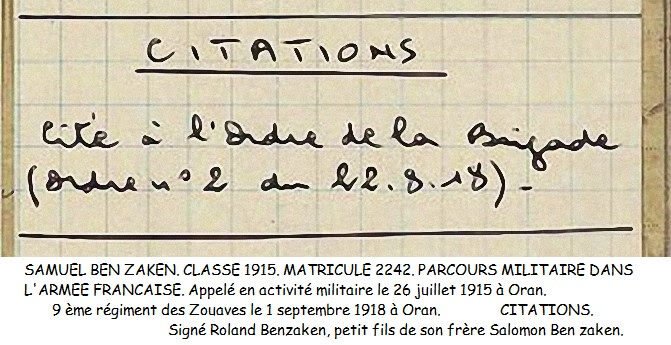 CITATIONS
Cité à l'Ordre de la Brigade
(Ordre n° 2 du 22.8.18)-
SAMUEL BEN ZAKEN. CLASSE 1915. MATRICULE 2242. PARCOURS MILITAIRE DANS
L'ARMEE FRANCAISE. Appelé en activité militaire le 26 juillet 1915 à Oran.
9 ème régiment des Zouaves le 1 septembre 1918 à Oran. CITATIONS.
Signé Roland Benzaken, petit fils de son frère Salomon Ben zaken.